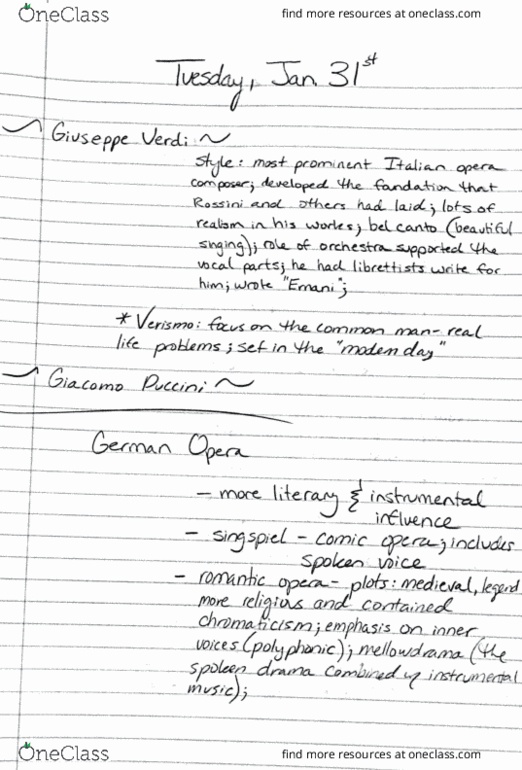 OneClass
find more resources at oneclass.com
Tuesday, Jan. 31st
Giuseppe Verdi ~
style: most prominent Italian opera
composer; developed the fondation that
Rossini and others had laid; lots of
realism in his works; bel canto (beautiful
singing); role of orchestra supported the
vocal parts; he had librettists write for
him; wrote "Ernani";
* Verismo: focus on the common man- real
life problems; set in the "modern day"
Giacomo Puccini ~
German Opera
- more literary & instrumental
influence
- singspiel - comic opera; includes
spoken voice
- romantic opera- plots: medieval, legend
more religious and contained
chromaticism; emphasis on inner
voices (polyphonic); mellowdrama (the
spoken drama combined w/ instrumental
music);
OneClass
find more resources at oneclass.com